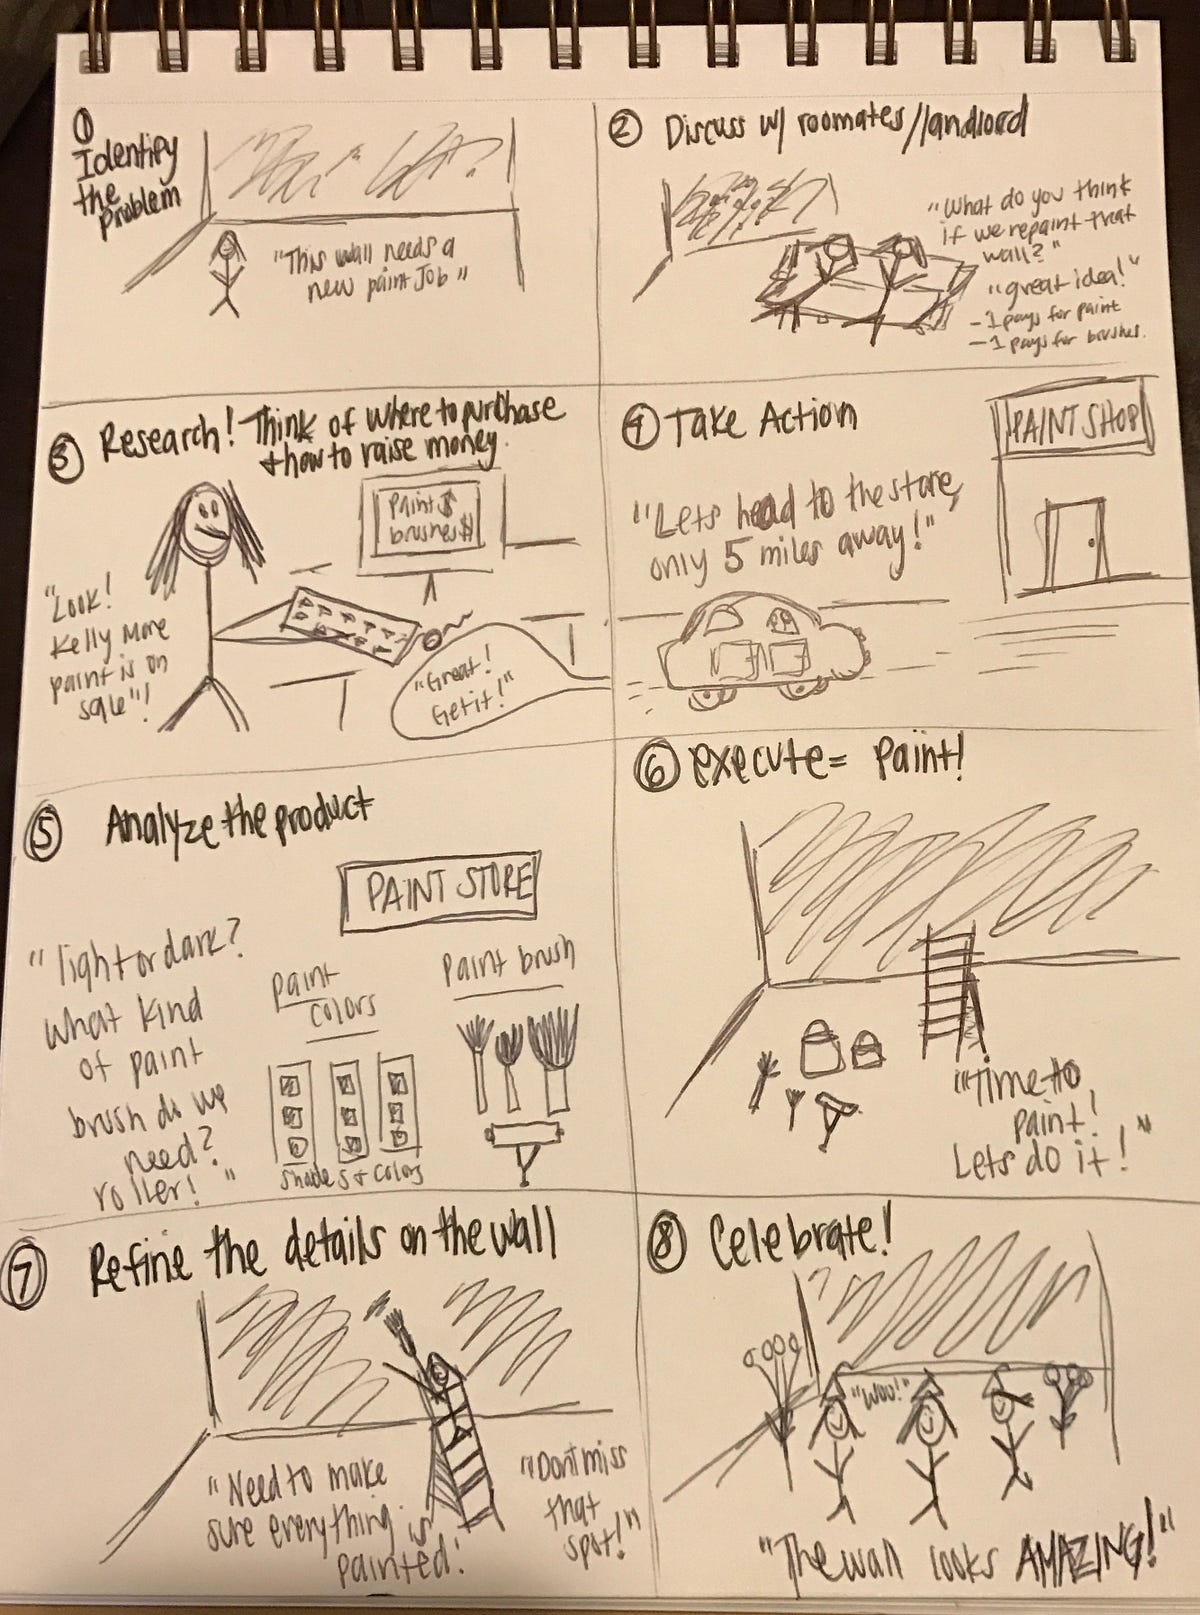 ①
Identify
the
Problem
"This wall needs a
new paint Job"
② Discuss w/ roomates/landlord
"What do you think
if we repaint that
wall?"
"great idea!"
- 1 pays for paint
- 1 pays for brushes.
③ Research! Think of where to purchase
+ how to raise money.
Paint $
brushes $
"Look!
Kelly More
paint is on
sale"!
"Great!
Get it!"
④ Take Action
PAINT SHOP
"Lets head to the store,
only 5 miles away!"
⑤ Analyze the product
PAINT STORE
"light or dark?
What kind
of paint
brush do we
need?
roller!"
Paint
Colors
Shades + Colors
Paint brush
⑥ execute = Paint!
"Time to
paint!
Lets do it!"
⑦ Refine the details on the wall
"Need to make
sure everything is
painted!
"Dont miss
that
spot!"
⑧ Celebrate!
"Woo!"
"The wall looks AMAZING!"